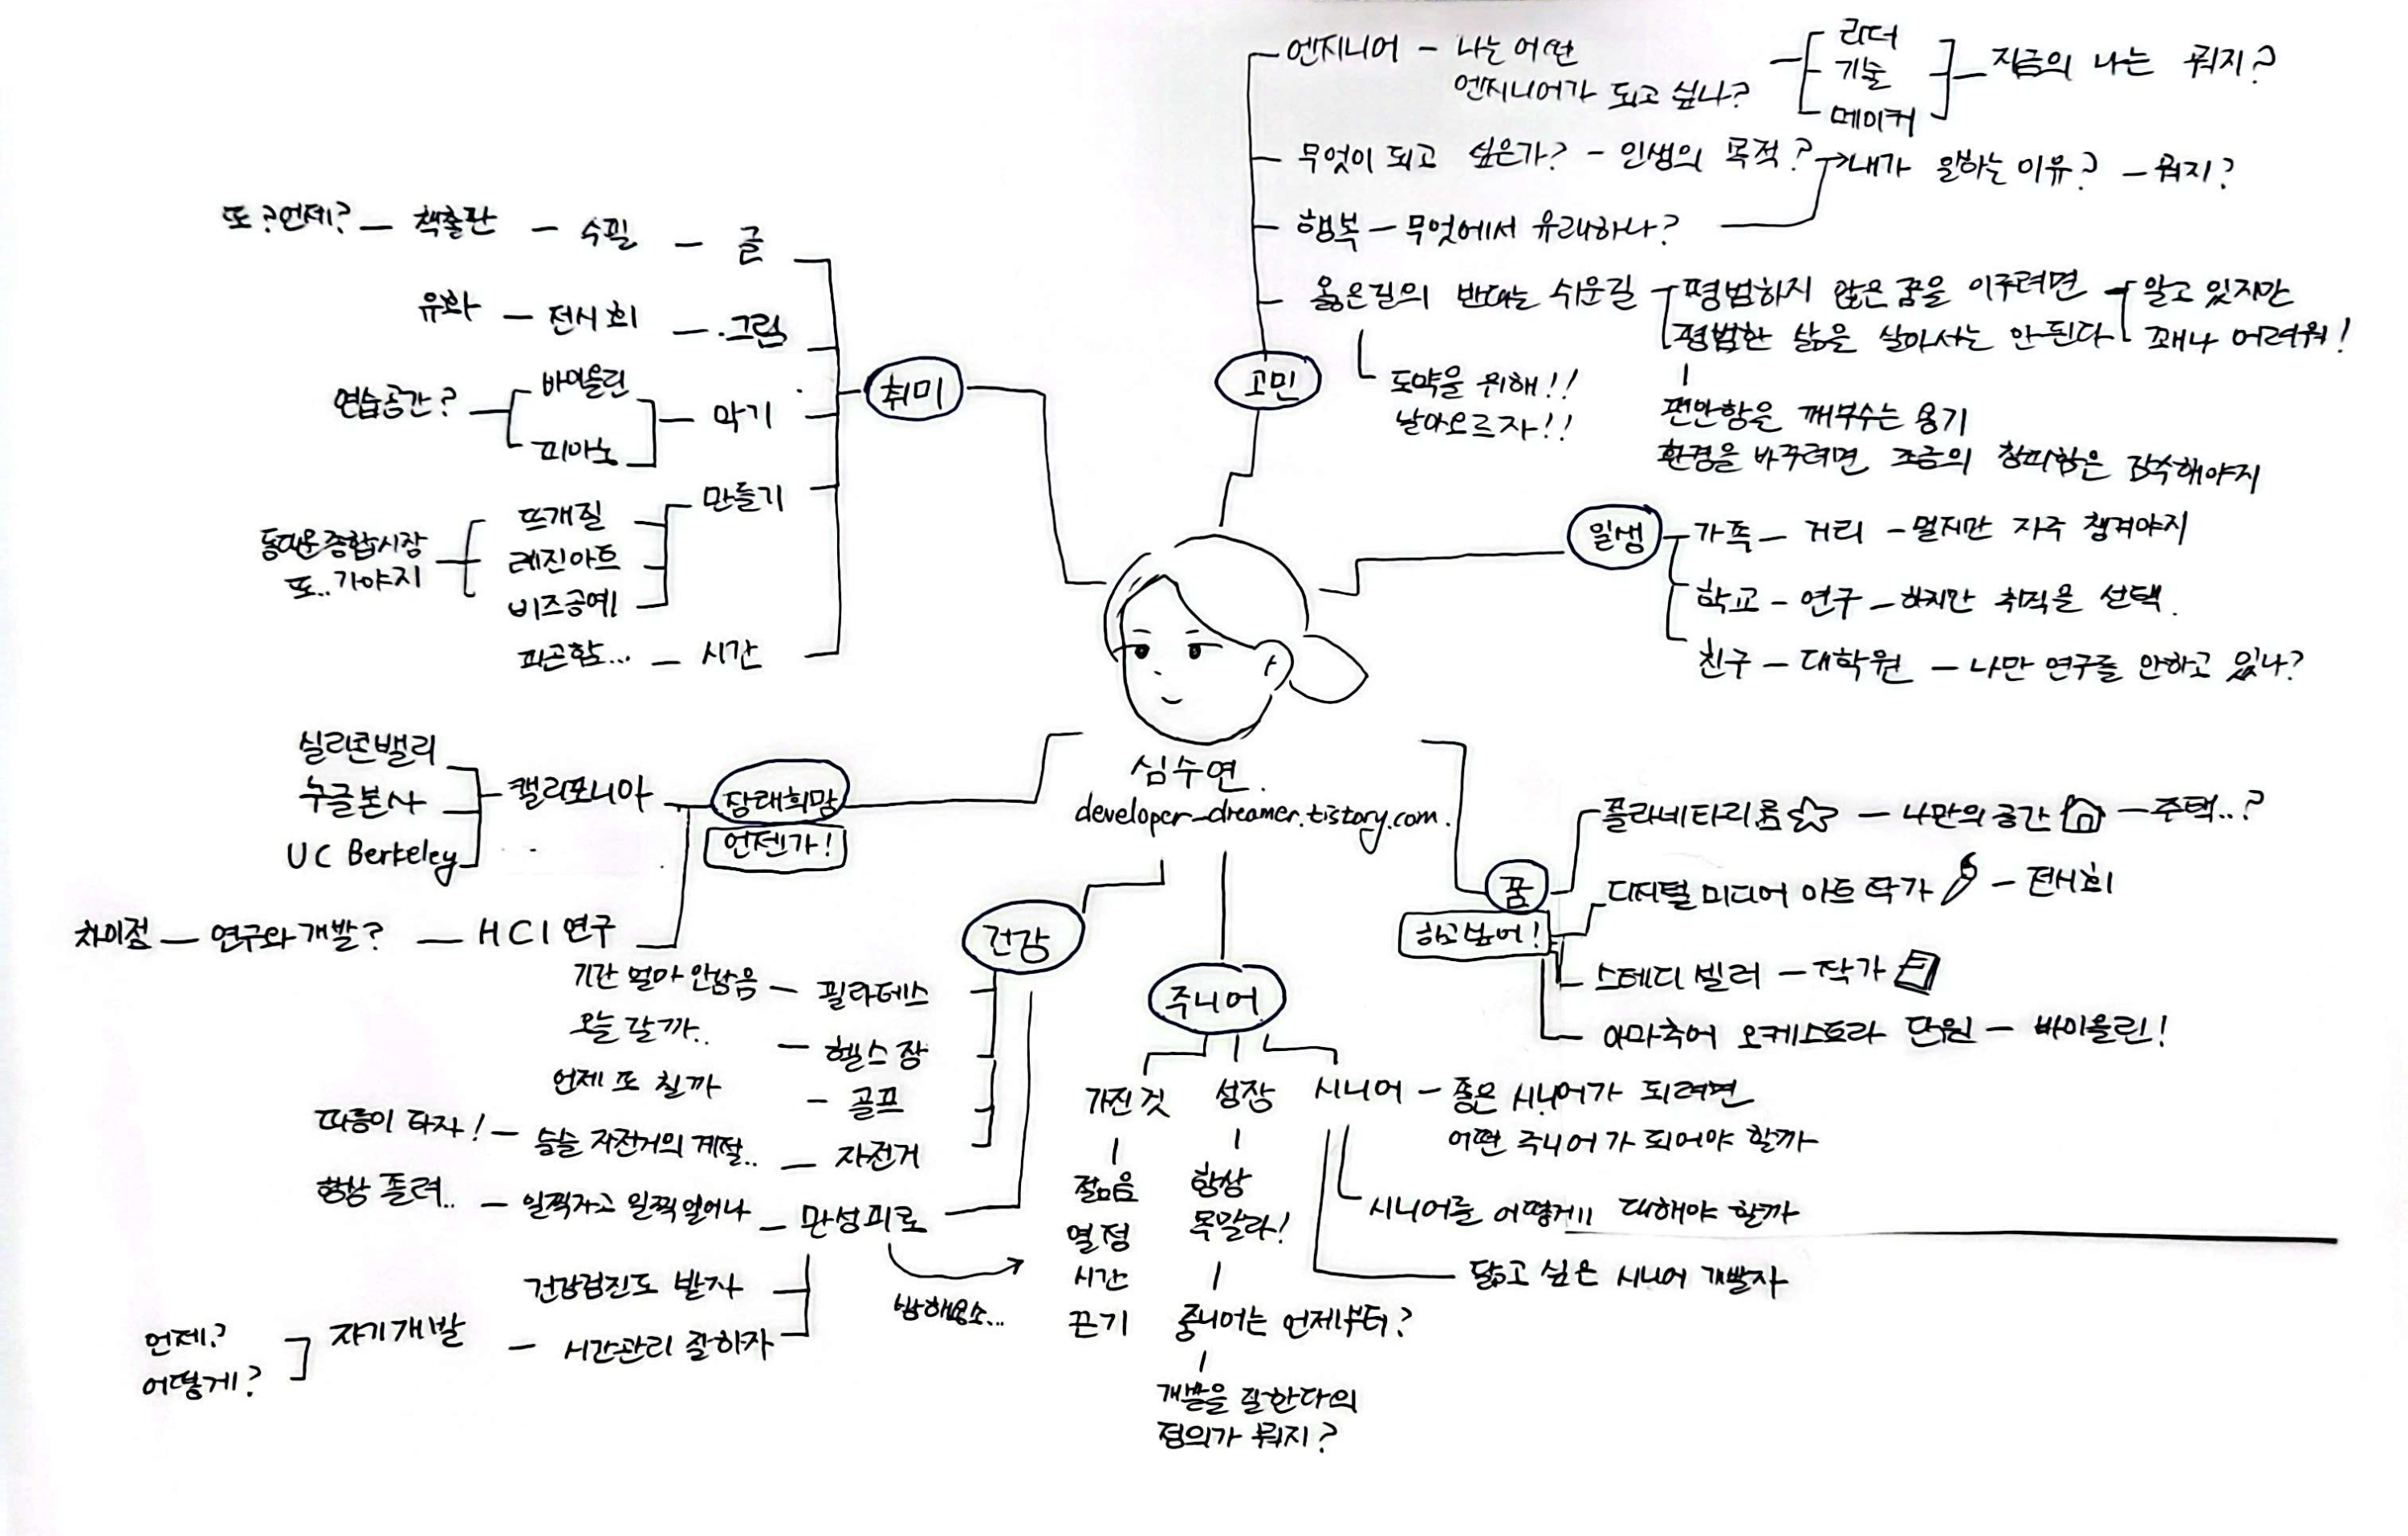 엔지니어 - 나는 어떤
엔지니어가 되고 싶나?
리더
기술
메이커
지금의 나는 뭐지?
무엇이 되고 싶은가? - 인생의 목적?
내가 일하는 이유? - 뭐지?
행복 - 무엇에서 유래하나?
옳은길의 반대는 쉬운길
평범하지 않은 꿈을 이루려면
평범한 삶을 살아서는 안된다
알고 있지만
꽤나 어려워!
도약을 위해!!
날아오르자!!
편안함을 깨부수는 용기
환경을 바꾸려면 조금의 창피함은 감수해야지
고민
또?언제? - 책출판 - 수필 - 글
유화 - 전시회 - 그림
연습공간?
바이올린
피아노
악기
취미
만들기
뜨개질
레진아트
비즈공예
동대문종합시장
또..가야지
피곤함... - 시간
일생
가족 - 거리 - 멀지만 자주 챙겨야지
학교 - 연구 - 하지만 취직을 선택.
친구 - 대학원 - 나만 연구를 안하고 있나?
심수연.
developer-dreamer.tistory.com.
실리콘밸리
구글본사
UC Berkeley
캘리포니아
장래희망
언젠가!
차이점 - 연구와 개발? - HCI 연구
꿈
하고싶어!
플라네타리움 - 나만의 공간 - 주택..?
디지털 미디어 아트 작가 - 전시회
스테디 셀러 - 작가
아마추어 오케스트라 단원 - 바이올린!
건강
기간 얼마 안남음 - 필라테스
오늘 갈까.. - 헬스장
언제 또 칠까 - 골프
따릉이 타자! - 슬슬 자전거의 계절.. - 자전거
항상 졸려.. - 일찍자고 일찍일어나 - 만성피로
방해요소...
건강검진도 받자
시간관리 잘하자
자기개발
언제?
어떻게?
주니어
가진 것
젊음
열정
시간
끈기
성장
항상
목말라!
중니어는 언제부터?
개발을 잘한다의
정의가 뭐지?
시니어 - 좋은 시니어가 되려면
어떤 주니어가 되어야 할까
시니어를 어떻게 대해야 할까
닮고 싶은 시니어 개발자